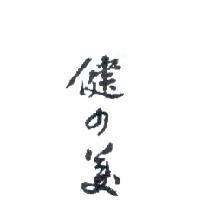 健の美